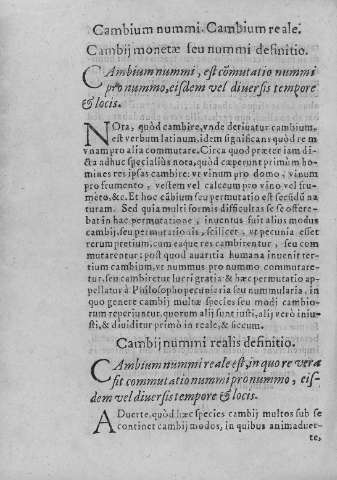 Cambium nummi. Cambium reale.
Cambij monetæ seu nummi definitio.
CAmbium nummi, est cõmutatio nummi
pro nummo, eisdem vel diuersis tempore
& locis.
NOta, quòd cambire, vnde deriuatur cambium,
est verbum latinum, idem significans quòd re m
vnam pro alia commutare. Circa quod præter iam di-
cta adhuc specialiùs nota, quòd cæperunt primò m ho-
mines res ipsas cambire: vt vinum pro domo, vinum
pro frumento, vestem vel calceum pro vino vel fru-
mēto, &c. Et hoc cābium seu permutatio est secūdū na
turam. Sed quia multi formis difficultas se se offere-
bat in hac permutatione, inuentus fuit alius modus
cambij, seu permutationis, scilicet, vt pecunia esset
rerum pretium, cum eaque res cambirentur, seu com
mutarentur: post quod auaritia humana inuenit ter-
tium cambium, vt nummus pro nummo commutare-
tur, seu cambiretur lucri gratia & hæc permutatio ap-
pellatur à Philosopho permutaria seu nummularia, in
quo genere cambij multæ species seu modi cambio-
rum reperiuntur, quorum alij sunt iusti, alij verò iniu-
sti, & diuiditur primò in reale, & siccum.
Cambij nummi realis definitio.
CAmbium nummi reale est, in quo re vera
fit commutatio nummi pro nummo, eis-
dem vel diuersis tempore & locis.
ADuerte, quòd hæc species cambij multos sub se
continet cambij modos, in quibus animaduer-
te,